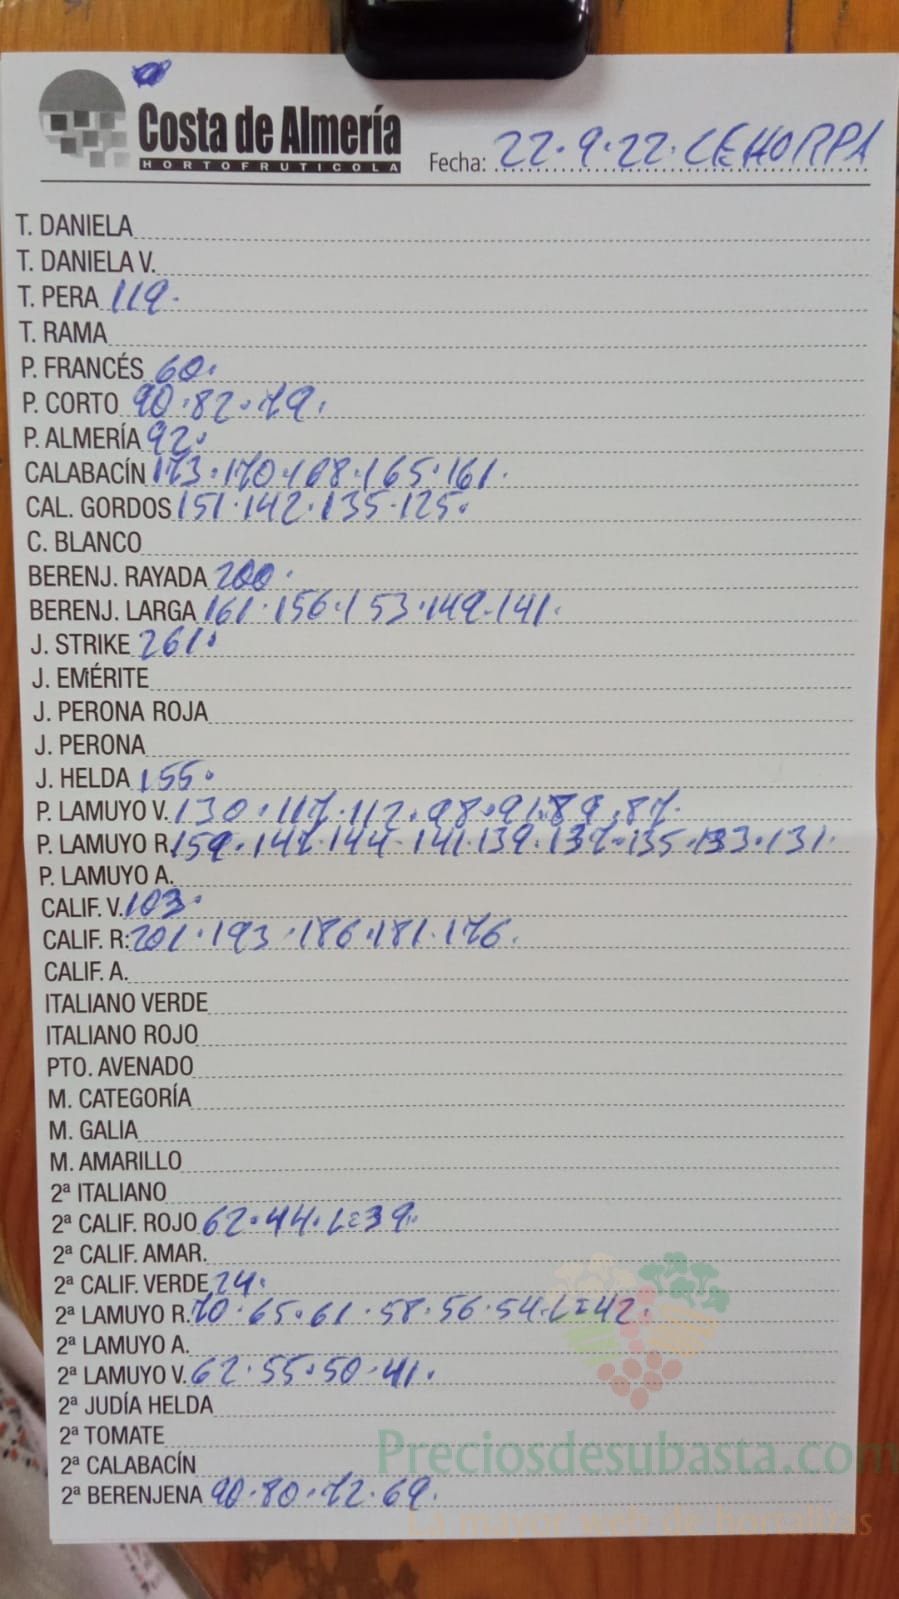 Costa de Almería
HORTOFRUTICOLA
Fecha: 22.9.22. CEHORPA
T. DANIELA
T. DANIELA V.
T. PERA 119.
T. RAMA
P. FRANCÉS 60.
P. CORTO 90.82.79.
P. ALMERÍA 92.
CALABACÍN 173.170.168.165.161.
CAL. GORDOS 151.142.135.125.
C. BLANCO
BERENJ. RAYADA 200.
BERENJ. LARGA 161.156.153.149.141.
J. STRIKE 261.
J. EMÉRITE
J. PERONA ROJA
J. PERONA
J. HELDA 155.
P. LAMUYO V. 130.117.112.98.91.89.87.
P. LAMUYO R. 159.147.144.141.139.137.135.133.131.
P. LAMUYO A.
CALIF. V. 103.
CALIF. R: 201.193.186.181.176.
CALIF. A.
ITALIANO VERDE
ITALIANO ROJO
PTO. AVENADO
M. CATEGORÍA
M. GALIA
M. AMARILLO
2ª ITALIANO
2ª CALIF. ROJO 62.44.L=39.
2ª CALIF. AMAR.
2ª CALIF. VERDE 24.
2ª LAMUYO R. 70.65.61.58.56.54.L=42.
2ª LAMUYO A.
2ª LAMUYO V. 62.55.50.41.
2ª JUDÍA HELDA
2ª TOMATE
2ª CALABACÍN
2ª BERENJENA 90.80.72.69.
Preciosdesubasta.com
La mayor web de hortalizas